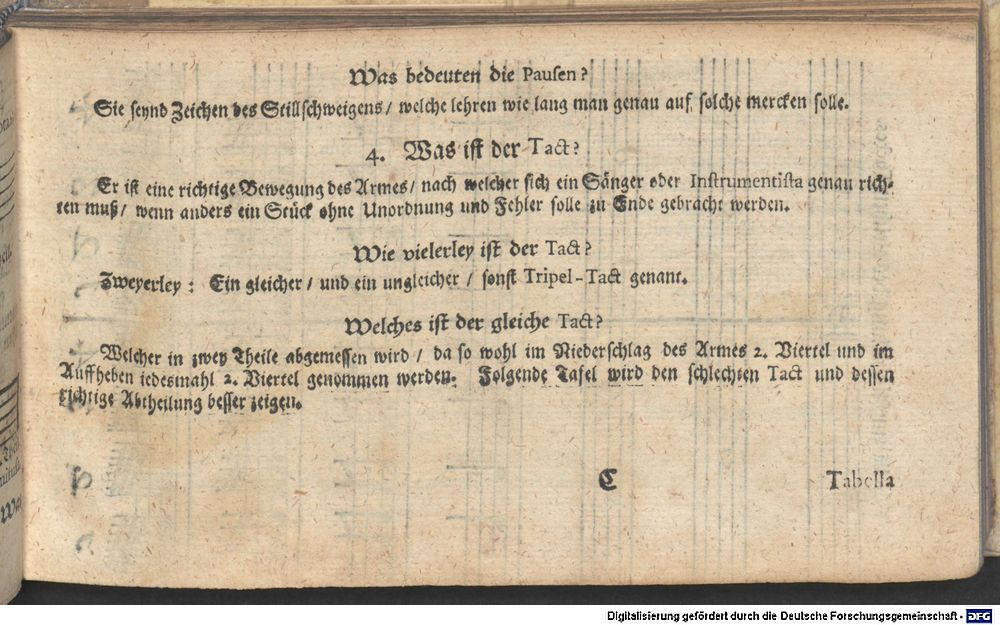 Was bedeuten die Pausen?
Sie seynd Zeichen des Stillschweigens / welche lehren wie lang man genau auf solche mercken solle.
4. Was ist der Tact?
Er ist eine richtige Bewegung des Armes / nach welcher sich ein Sänger oder Instrumentista genau rich-
ten muß / wenn anders ein Stück ohne Unordnung und Fehler solle zu Ende gebracht werden.
Wie vielerley ist der Tact?
Zweyerley: Ein gleicher / und ein ungleicher / sonst Tripel-Tact genant.
Welches ist der gleiche Tact?
Welcher in zwey Theile abgemessen wird / da so wohl im Niederschlag des Armes 2. Viertel und im
Auffheben iedesmahl 2. Viertel genommen werden. Folgende Tafel wird den schlechten Tact und dessen
richtige Abtheilung besser zeigen.
C Tabella
Digitalisierung gefördert durch die Deutsche Forschungsgemeinschaft - DFG